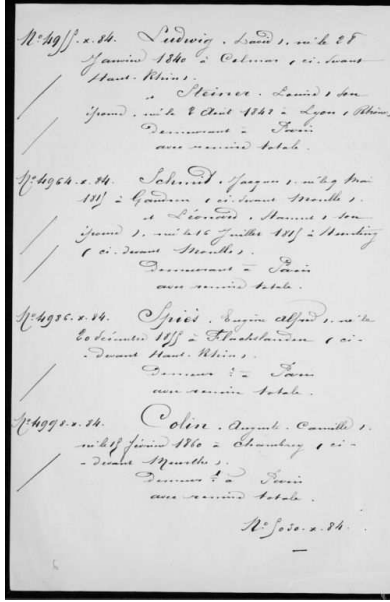 No 4955. x. 84. Ludwig, David, né le 28
Janvier 1840 à Colmar (ci-devant
Haut-Rhin).
et Steiner, Louise, son
épouse, née le 2 Août 1842 à Lyon (Rhône)
Demeurant à Paris
avec remise totale.
No 4964. x. 84. Schmit, Jacques, né le 9 Mai
1815 à (ci-devant Moselle).
et Léonard, son
épouse, née le 16 Juillet 1815 à
(ci-devant Moselle).
Demeurant à Paris
avec remise totale.
No 4986. x. 84. Spiès, Eugène Alfred, né le
20 décembre 1855 à Flachslanden (ci-
-devant Haut-Rhin).
Demeurt à Paris
avec remise totale.
No 4998. x. 84. Colin, Auguste Camille,
né le 15 février 1860 à Chambrey (ci-
-devant Meurthe).
Demeurt à Paris
avec remise totale.
No 5030. x. 84.